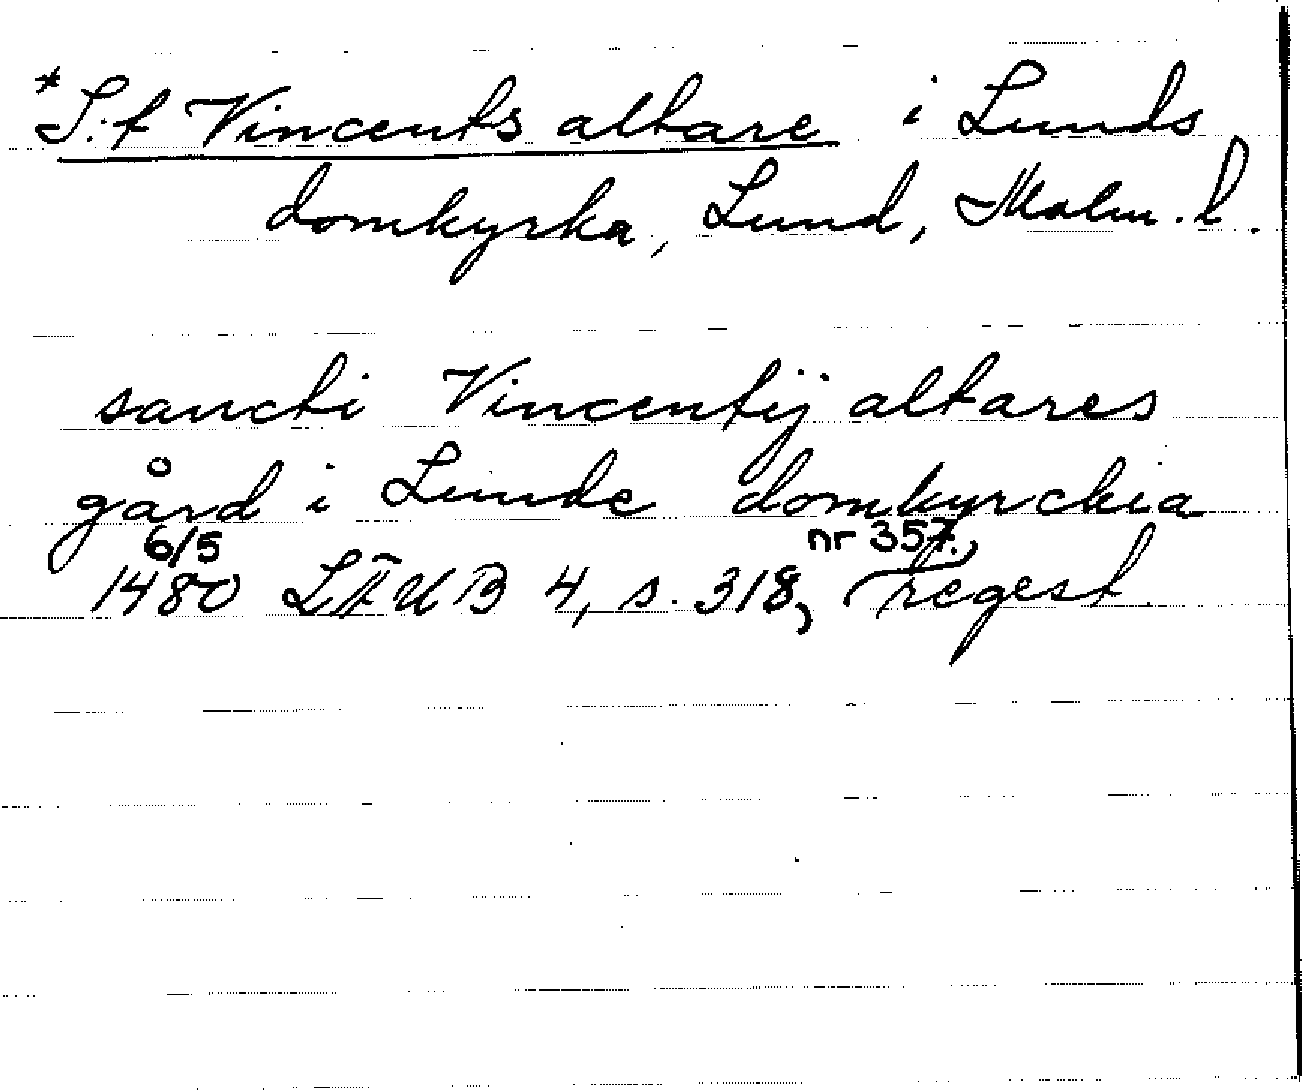 *S:t Vincents altare i Lunds
domkyrka, Lund, Malm. l.
sancti Vincentij altares
gård i Lunde domkyrckia
6/5 nr 357.,
1480 LÄUB 4, s. 318, regest